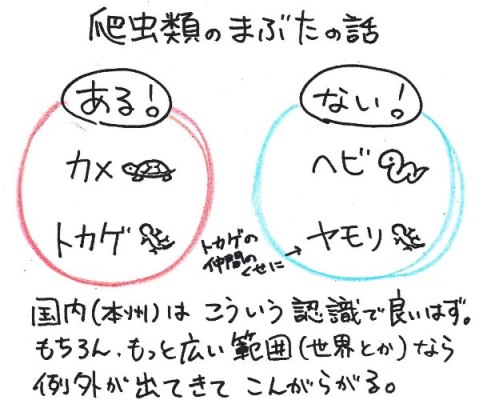 爬虫類のまぶたの話
ある!
ない!
カメ
ヘビ
トカゲ
トカゲの
仲間の
くせに
ヤモリ
国内(本州)は こういう 認識で良いはず。
もちろん、もっと広い範囲(世界とか)なら
例外が出てきて こんがらがる。